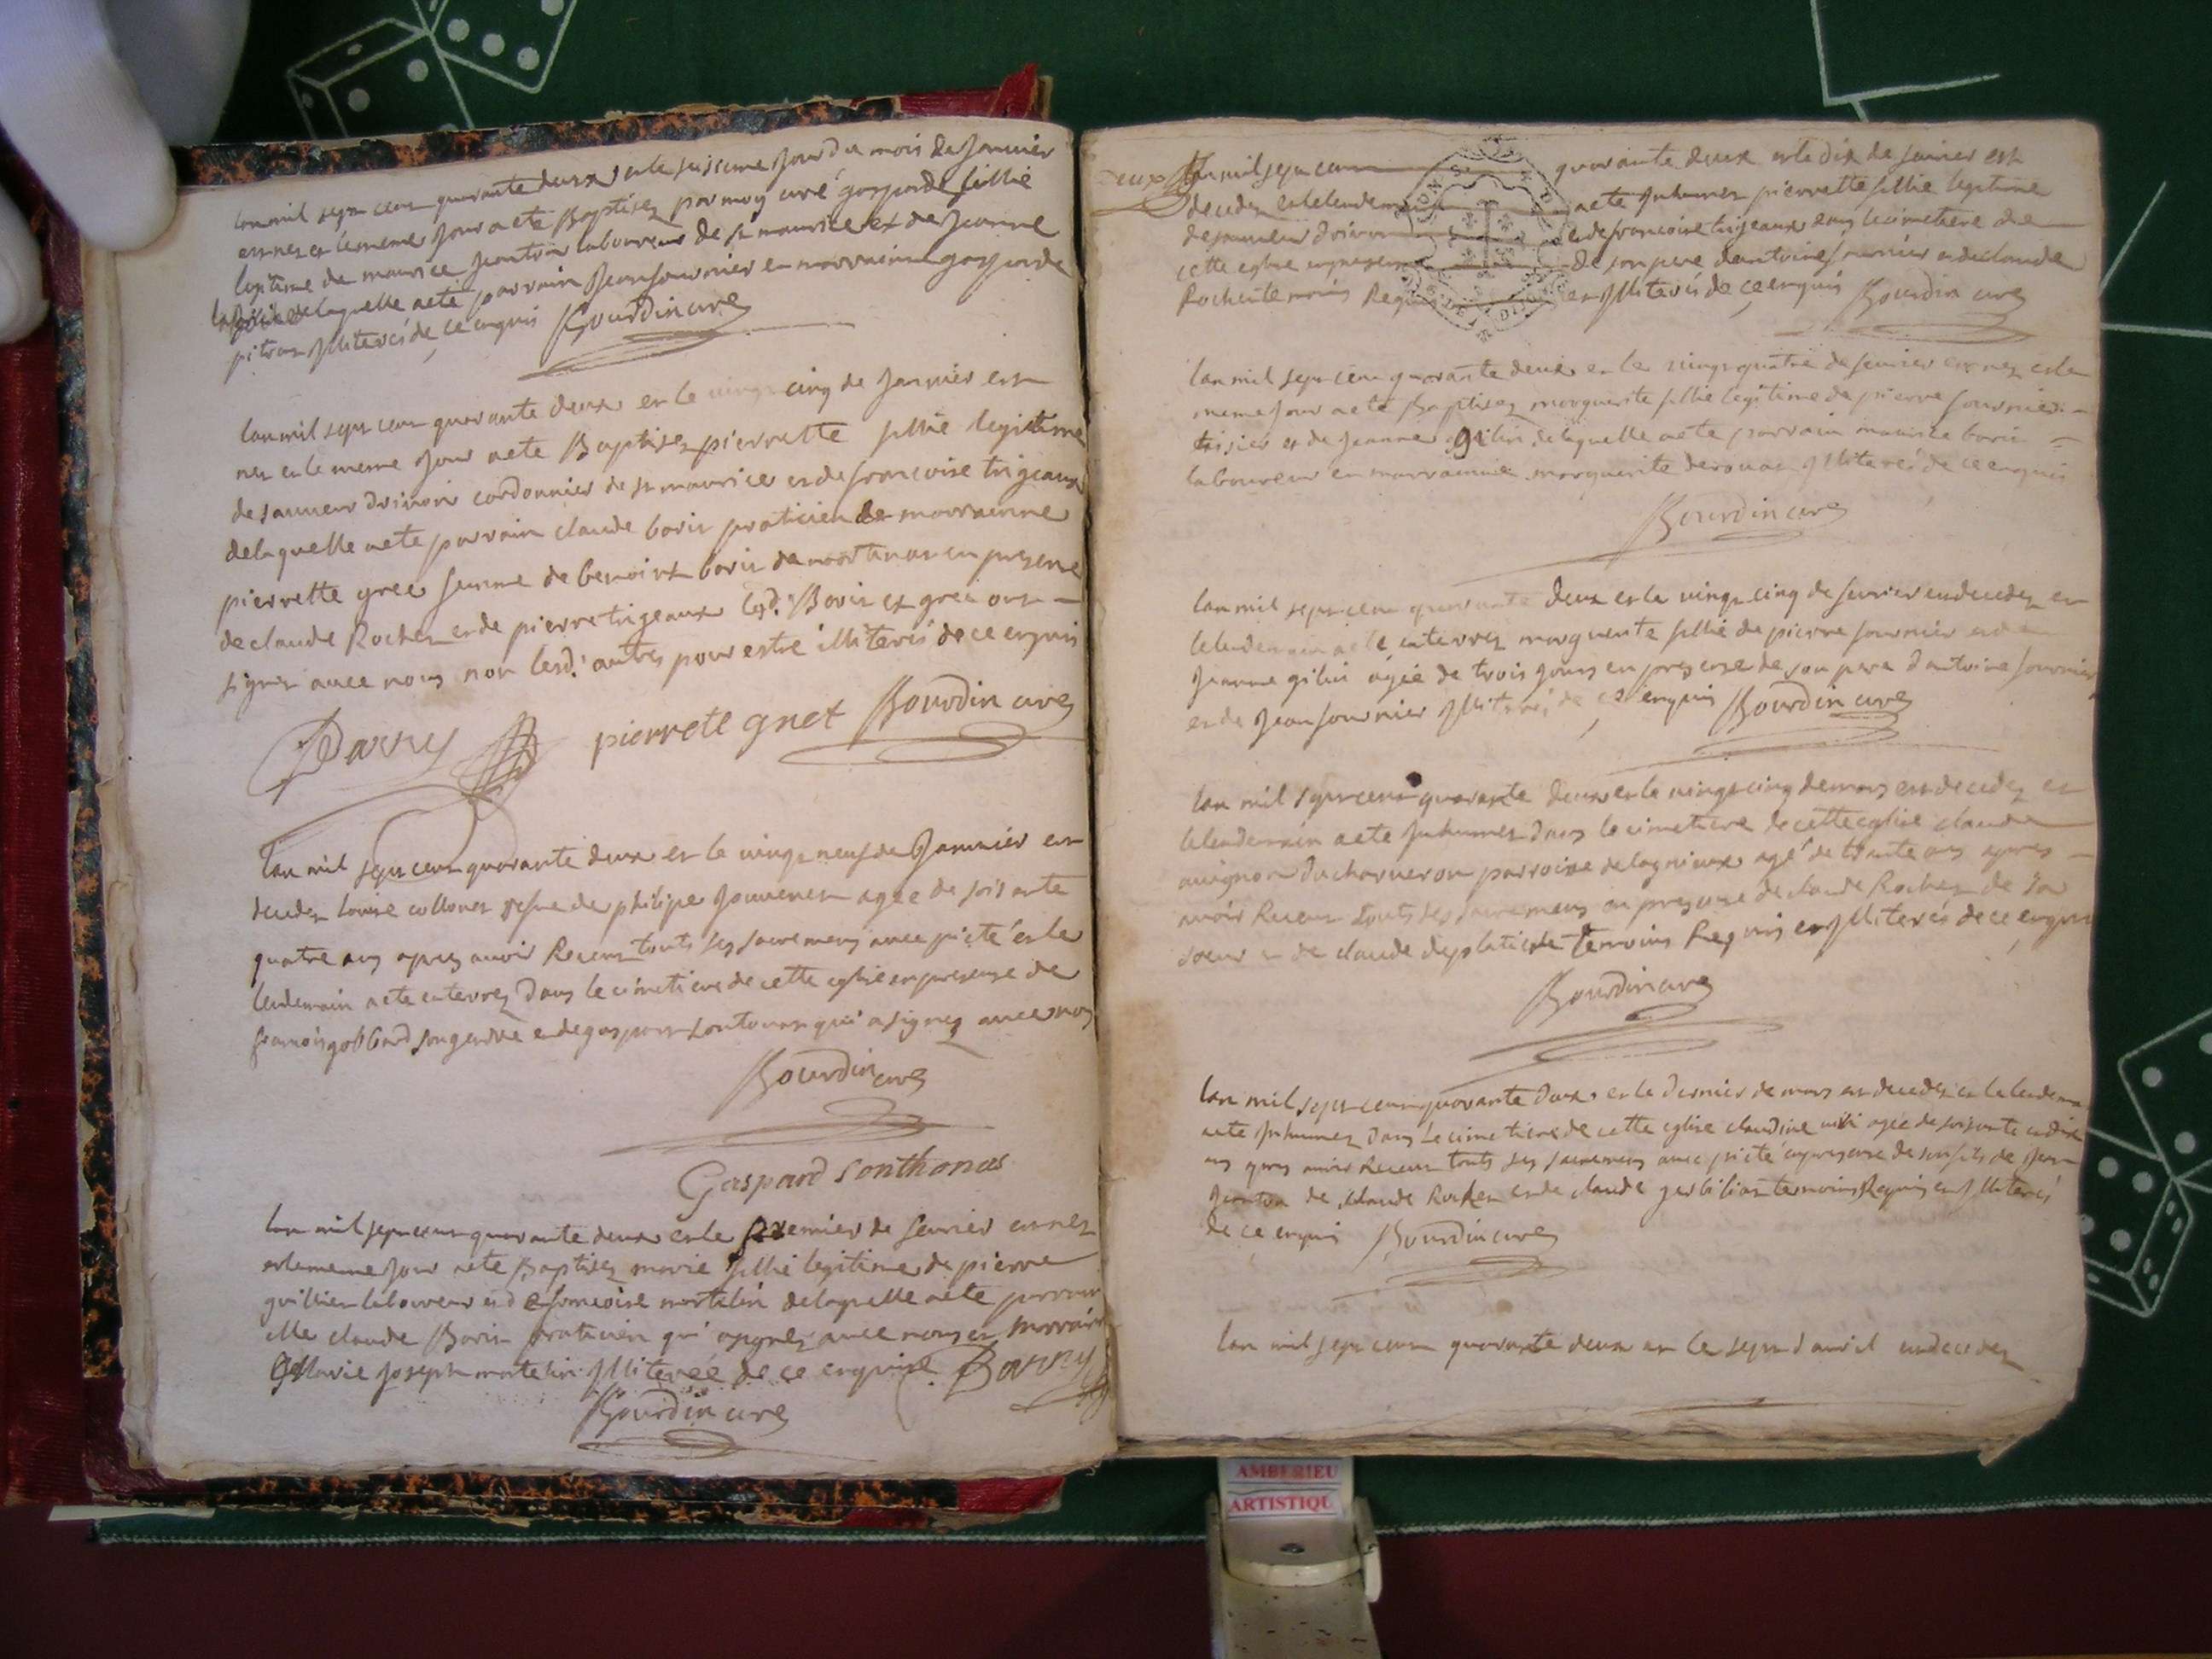 lan mil sept cent quarante deux et le sixieme jour du mois de Janvier
est nez et le meme jour a ete Baptisez par moy curé gasparde fillie
legitime de maurice Jeanton laboureur de st maurice et de Jeanne
de laquelle a ete parrain Jean fournier et marraine gasparde
pitrat Illiterés de ce enquis Bourdin curé
lan mil sept cent quarante deux et le vingt cinq de Janvier est
nez et le meme jour a ete Baptisez pierrette fillie legitime
de sauveur cordonnier de st maurice et de francoise trigeaux
de laquelle a ete parrain claude borin praticien et marrainne
pierrette gree femme de benoist borin de en presence
de claude Rochet et de pierre trigeaux lesd. Borin et gree ont
signez avec nous non lesd. autres pour estre illiterés de ce enquis
Barry pierrete gnet Bourdin curé
lan mil sept cent quarante deux et le vingt neuf de Janvier est
decedez louise collonet vefve de philipe Jouvenet agée de soixante
quatre ans apres avoir Receut touts ses sacremens avec pieté et le
lendemain a ete enterrez dans le cimetiere de cette eglise en presence de
francois gobbard son gendre et de gaspard sontonas qui a signez avec nous
Bourdin curé
Gaspard Sonthonas
lan mil sept cent quarante deux et le premier de fevrier est nez
et le meme jour a ete Baptisez marie fillie legitime de pierre
guillier laboureur et de francoise martelin de laquelle a ete parrain
Me claude Borin praticien qui a signez avec nous et marraine
Marie Joseph martelin Illiterée de ce enquise Barry
Bourdin curé
Deux lan mil sept cent quarante deux et le dix de fevrier est
decedez et le lendemain a ete Inhumez pierrette fillie legitime
de sauveur et de francoise trigeaux dans le cimetiere de
cette eglise en presence de son pere d'antoine fournier et de claude
Rochet temoins Requis et Illiterés de ce enquis Bourdin curé
lan mil sept cent quarante deux et le vingt quatre de fevrier est nez et le
meme jour a ete Baptisez marguerite fillie legitime de pierre fournier
tissier et de Jeanne gilin de laquelle a ete parrain maurice borin
laboureur et marrainne marguerite Illiterés de ce enquis
Bourdin curé
lan mil sept cent quarante deux et le vingt cinq de fevrier est decedez et
le lendemain a ete enterrez marguerite fillie de pierre fournier et de
Jeanne gilin agée de trois jours en presence de son pere d'antoine fournier
et de Jean fournier Illiterés de ce enquis Bourdin curé
lan mil sept cent quarante deux et le vingt cinq de mars est decedez et
le lendemain a ete Inhumez dans le cimetiere de cette eglise claude
avignon du charveron parroisse de lagnieux agé de trante ans apres
avoir Receut touts ses sacremens en presence de claude Rochet de sa
soeur et de claude temoins Requis et Illiterés de ce enquis
Bourdin curé
lan mil sept cent quarante deux et le dernier de mars est decedez et le lendemain
a ete Inhumez dans le cimetiere de cette eglise claudine agée de soixante et dix
ans apres avoir Receut touts ses sacremens avec pieté en presence de son fils de Jean
Jeanton de claude Rochet et de claude temoins Requis et Illiterés
de ce enquis Bourdin curé
lan mil sept cent quarante deux et le sept d'avril est decedez
AMBERIEU
ARTISTIQU